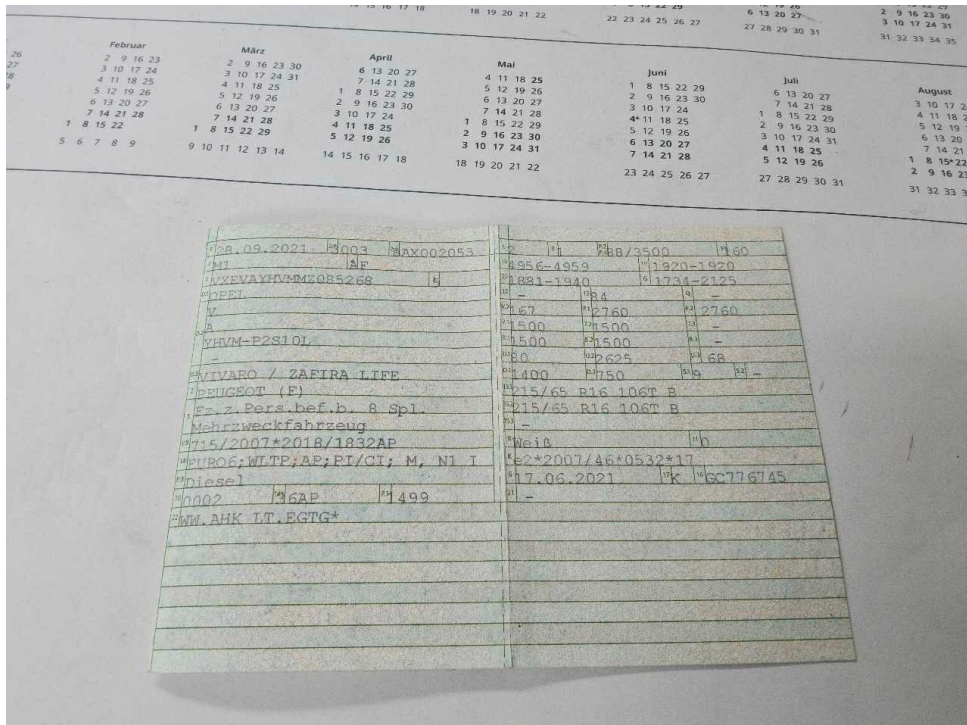 14 15 16 17 18
18 19 20 21 22
22 23 24 25 26 27
6 13 20 27
27 28 29 30 31
2 9 16 23 30
3 10 17 24 31
31 32 33 34 35
26
27
28
Februar
2 9 16 23
3 10 17 24
4 11 18 25
5 12 19 26
6 13 20 27
7 14 21 28
1 8 15 22
5 6 7 8 9
März
2 9 16 23 30
3 10 17 24 31
4 11 18 25
5 12 19 26
6 13 20 27
7 14 21 28
1 8 15 22 29
9 10 11 12 13 14
April
6 13 20 27
7 14 21 28
1 8 15 22 29
2 9 16 23 30
3 10 17 24
4 11 18 25
5 12 19 26
14 15 16 17 18
Mai
4 11 18 25
5 12 19 26
6 13 20 27
7 14 21 28
1 8 15 22 29
2 9 16 23 30
3 10 17 24 31
18 19 20 21 22
Juni
1 8 15 22 29
2 9 16 23 30
3 10 17 24
4* 11 18 25
5 12 19 26
6 13 20 27
7 14 21 28
23 24 25 26 27
Juli
6 13 20 27
7 14 21 28
1 8 15 22 29
2 9 16 23 30
3 10 17 24 31
4 11 18 25
5 12 19 26
27 28 29 30 31
August
3 10 17
4 11 18
5 12 19
6 13 20
7 14 21
1 8 15* 22
2 9 16 23
31 32 33
28.09.2021 3003 AAX002053
M1 AF
VXEVAYHVMMZ085268
OPEL
V
A
YHVM-P2S10L
-
VIVARO / ZAFIRA LIFE
PEUGEOT (F)
Fz.z.Pers.bef.b. 8 Spl.
Mehrzweckfahrzeug
715/2007*2018/1832AP
EURO6;WLTP;AP;PI/CI; M, N1 I
Diesel
0002 36AP 1499
WW.AHK LT.EGTG*
2 1 88/3500 160
4956-4959 1920-1920
1881-1940 1734-2125
- 84 -
167 2760 2760
1500 1500 -
1500 1500 -
80 2625 68
1400 750 9 -
215/65 R16 106T B
215/65 R16 106T B
-
Weiß 0
e2*2007/46*0532*17
17.06.2021 K GC776745
-